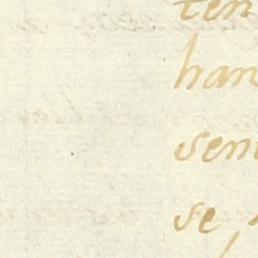 ten
han
sen
se,